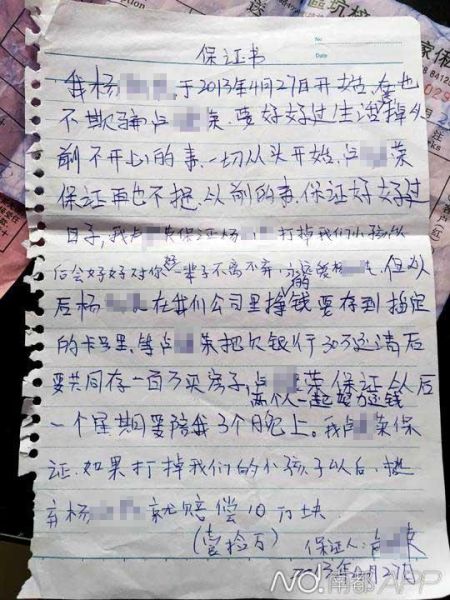 保证书
我杨 于2013年4月27日开始,在也
不欺骗卢 荣,要好好过生活掉从
前不开心的事,一切从头开始,卢 荣
保证再也不提从前的事,保证好好过
日子,我卢 荣保证杨 打掉我们小孩以
后会好好对你好一辈子不离不弃,永远的爱杨 ,但从
后杨 在我们公司里挣钱要存到指定
的卡号里,等卢 荣把欠银行30万还清后
要共同存一百万买房子,卢 荣保证从后
两个人一起努力还钱
一个星期要陪我3个晚上。我卢 荣保
证,如果打掉我们的小孩子以后,抛
弃杨 就赔偿10万块
(壹拾万)
保证人:卢 荣
2013年4月27日
NO.南都APP